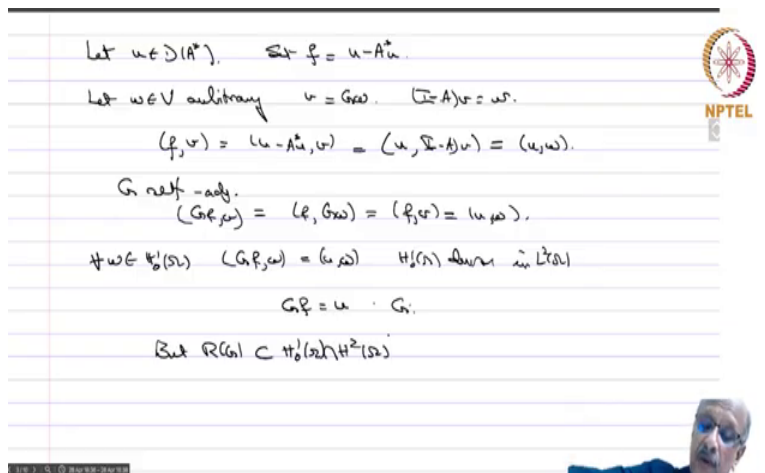 Let u ∈ D(A*). Set f = u - A*u.
Let w ∈ V arbitrary v = Gw. (I-A)v = w.
(f,v) = (u - A*u, v) = (u, (I-A)v) = (u,w).
G self-adj.
(Gf,w) = (f, Gw) = (f,v) = (u,w).
∀ w ∈ H₀¹(Ω) (Gf,w) = (u,w) H₀¹(Ω) dense in L²(Ω)
Gf = u . G.
But R(G) ⊂ H₀¹(Ω)∩H²(Ω)
NPTEL